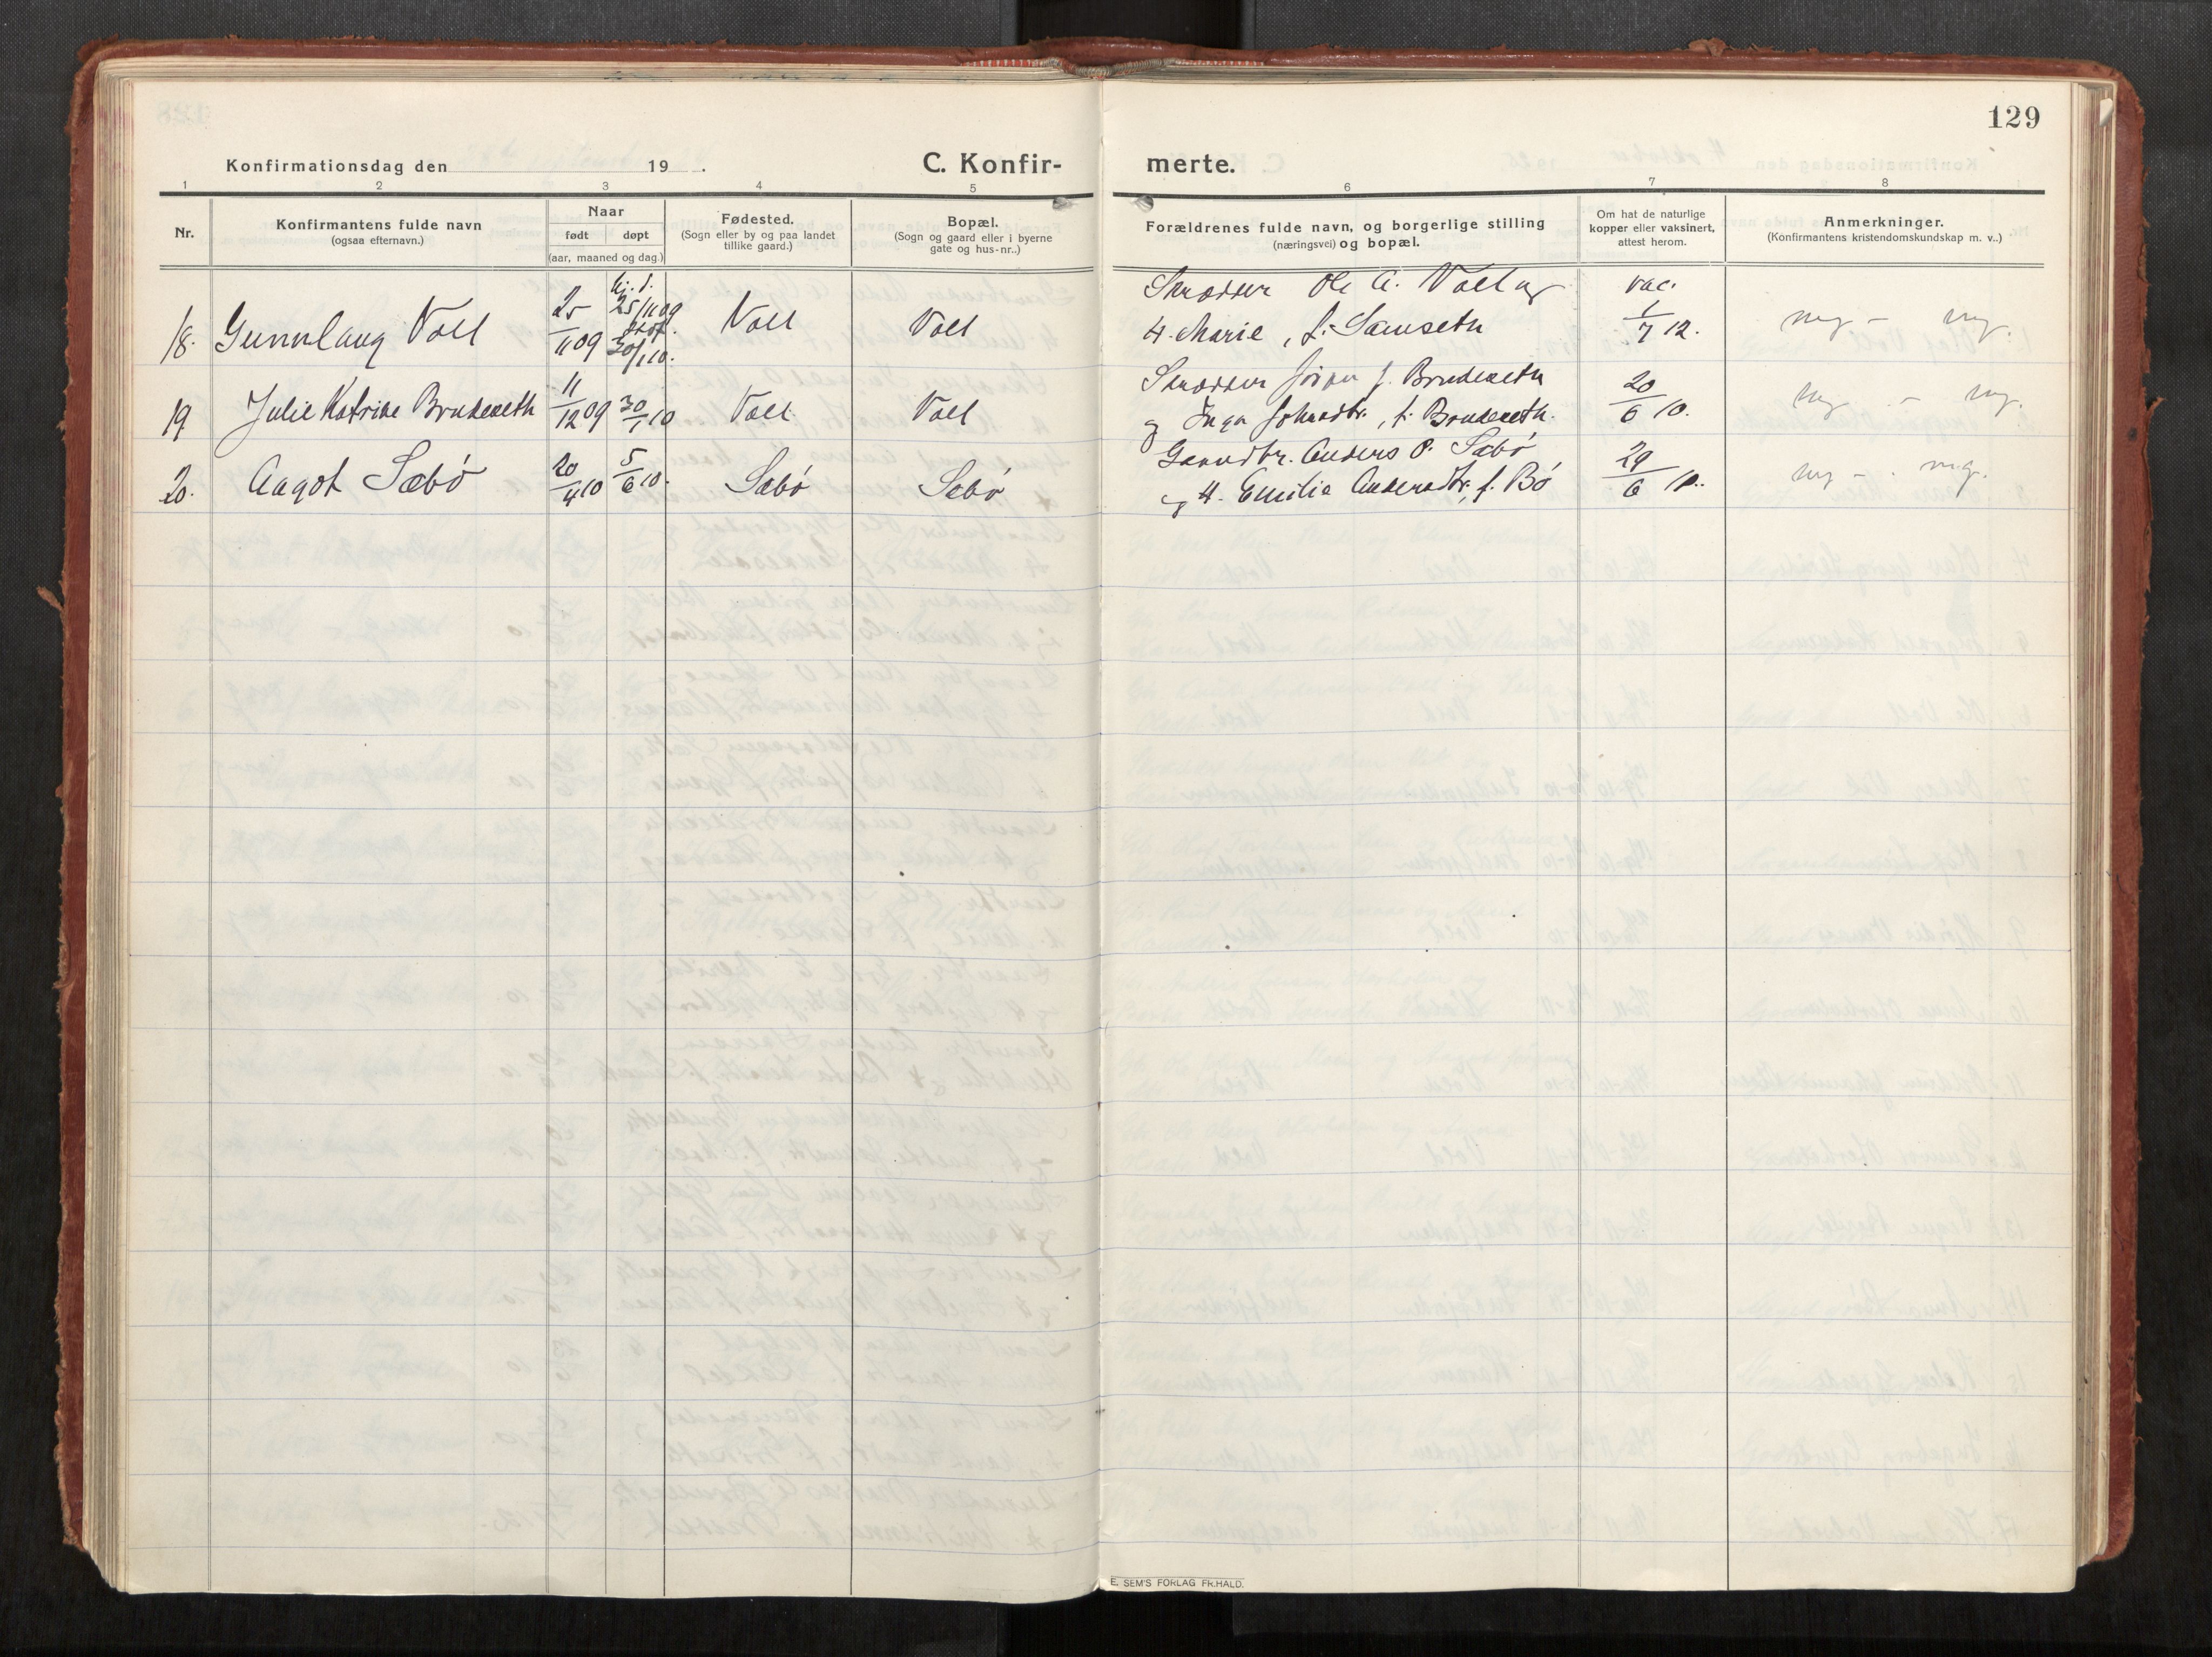 129
Konfirmationsdag den 19 .
C. Konfir-
merte.
1 2 3 4 5 6 7 8
Nr.
Konfirmantens fulde navn
(ogsaa efternavn.)
Naar
født døpt
(aar, maaned og dag.)
Fødested.
(Sogn eller by og paa landet
tillike gaard.)
Bopæl.
(Sogn og gaard eller i byerne
gate og hus-nr..)
Forældrenes fulde navn, og borgerlige stilling
(næringsvei) og bopæl.
Om hat de naturlige
kopper eller vaksinert,
attest herom.
Anmerkninger.
(Konfirmantens kristendomskundskap m. v..)
18. Gunnlaug Voll 25/11 09 hj. d. 25/11 09 stadf. 30/1 10. Voll Voll
Skrædder Ole A. Voll og
H. Marie, f. Samseth
vac. 1/7 12. mg - mg.
19 Julie Katrine Brudeseth 11/12 09 30/1 10 Voll Voll
Skrædder Jörgen J. Brudeseth
og Inga Johansdtr., f. Brudeseth.
20/6 10. mg - mg.
20. Aagot Sæbö 20/4 10 5/6 10. Sæbö Sæbö
Gaardbr. Anders P. Sæbö
og H. Emilie Andersdtr., f. Bö
29/6 10. mg - mg.
E. SEM'S FORLAG FR.HALD.